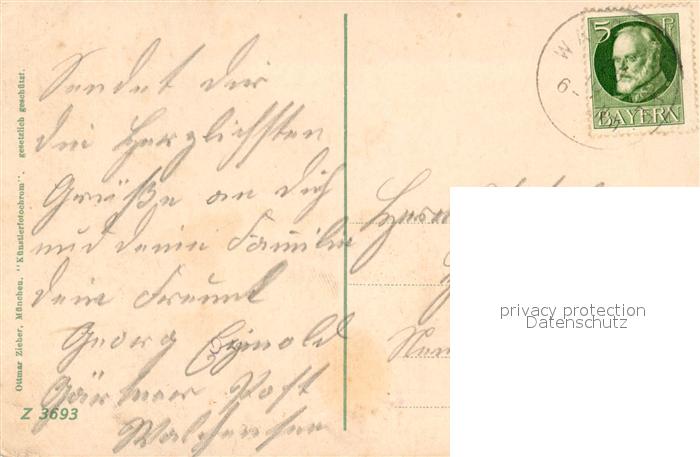 Sendet dir
die Herzlichsten
Grüße an dich
und deine Familie
dein Freund
Georg
Gärtner Post
Walchensee
Ottmar Zieher, München. "Künstlerfotochrom". gesetzlich geschützt.
Z 3693
5 Pf
BAYERN
Herrn
privacy protection
Datenschutz